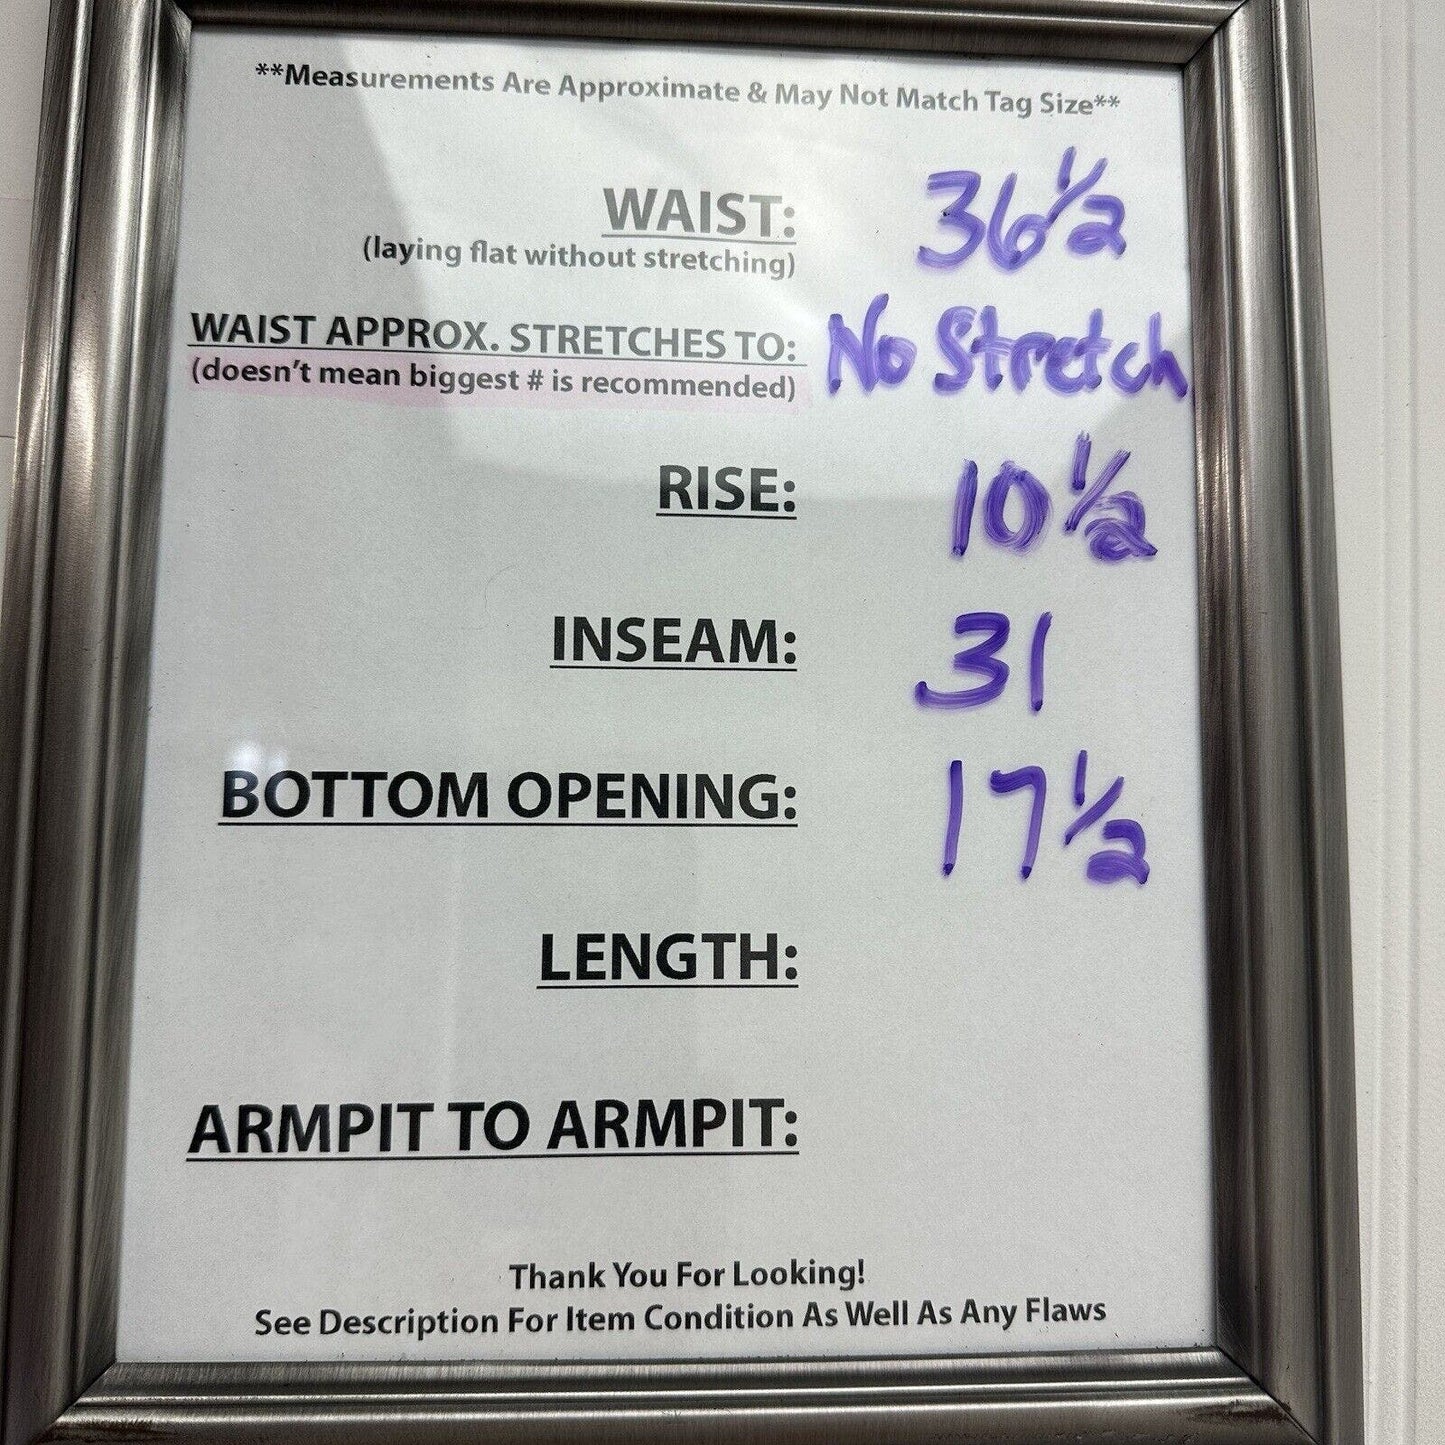 **Measurements Are Approximate & May Not Match Tag Size**
WAIST: 36 1/2
(laying flat without stretching)
WAIST APPROX. STRETCHES TO: No Stretch
(doesn't mean biggest # is recommended)
RISE: 10 1/2
INSEAM: 31
BOTTOM OPENING: 17 1/2
LENGTH:
ARMPIT TO ARMPIT:
Thank You For Looking!
See Description For Item Condition As Well As Any Flaws